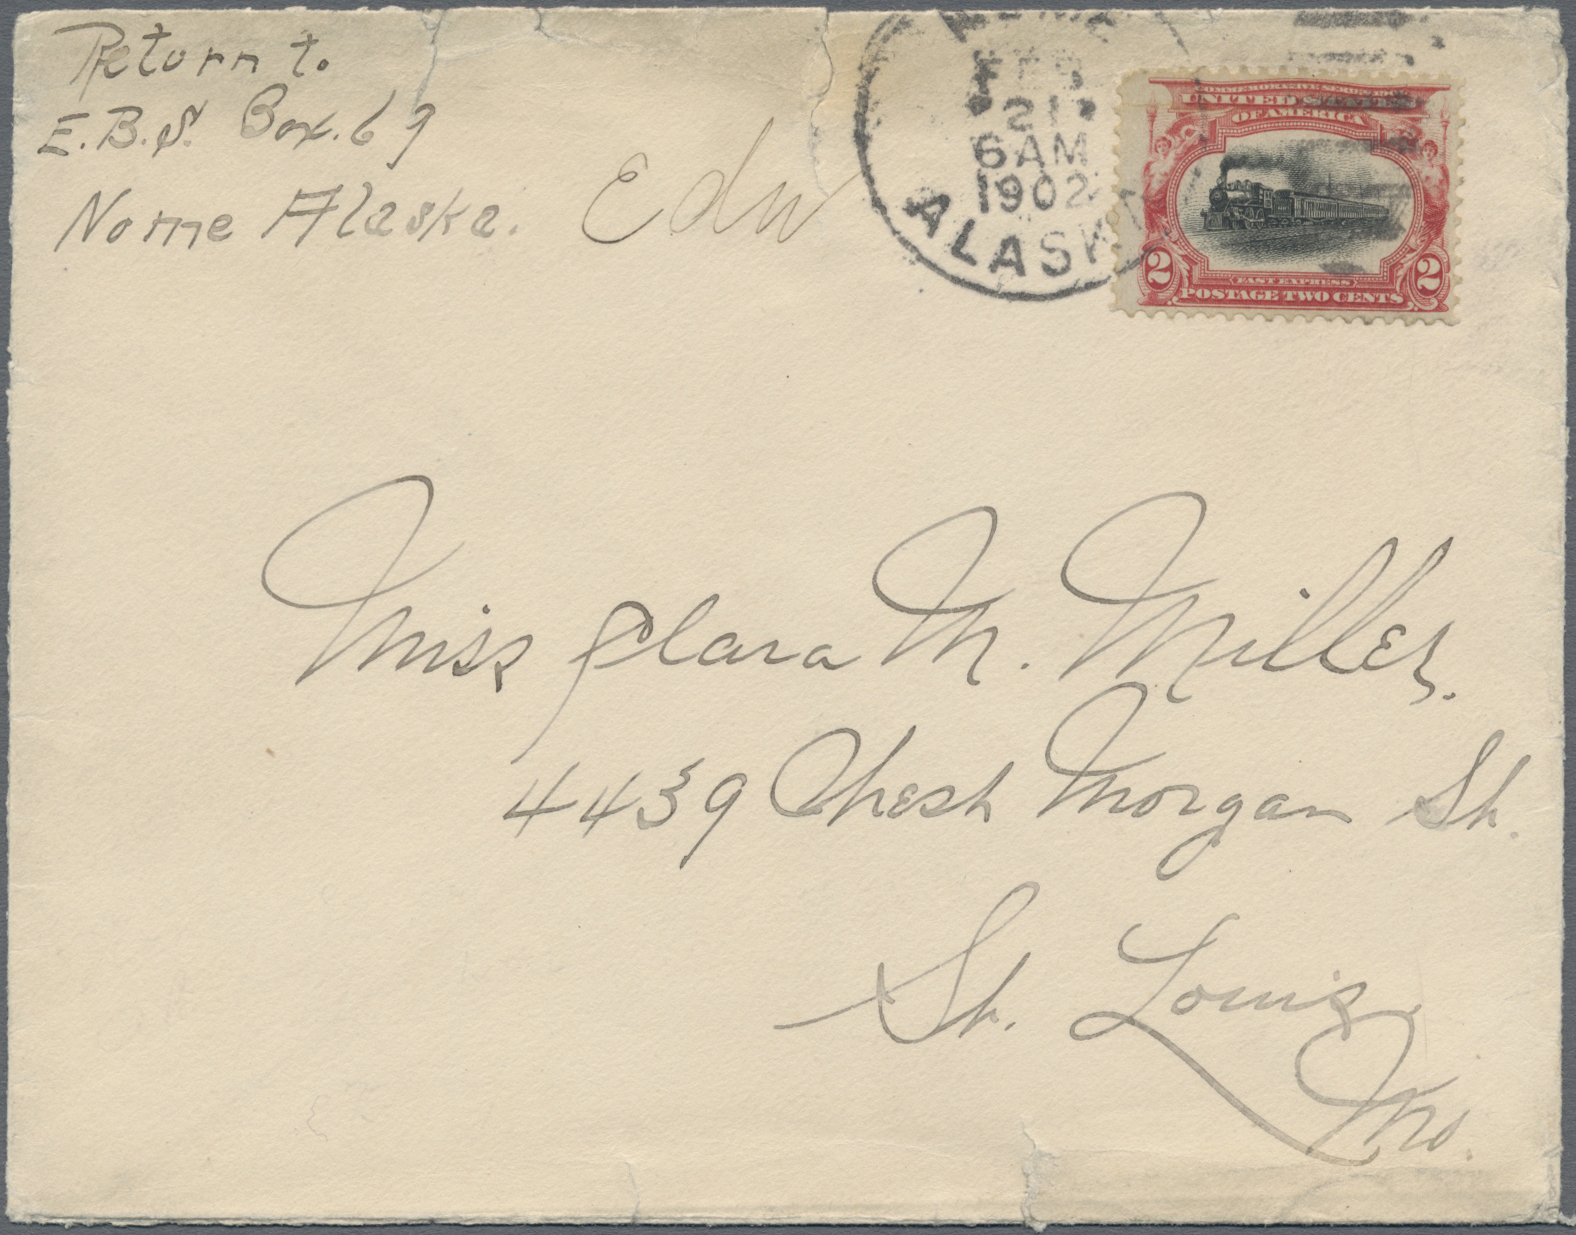 Return to.
E.B.S. Box. 69
Nome Alaska. Edw
FEB
21
6 AM
1902
ALASKA
COMMEMORATIVE SERIES 1901
UNITED STATES
OF AMERICA
FAST EXPRESS
2 POSTAGE TWO CENTS 2
Miss Clara M. Miller.
4439 Chest Morgan St.
St. Louis,
Mo.